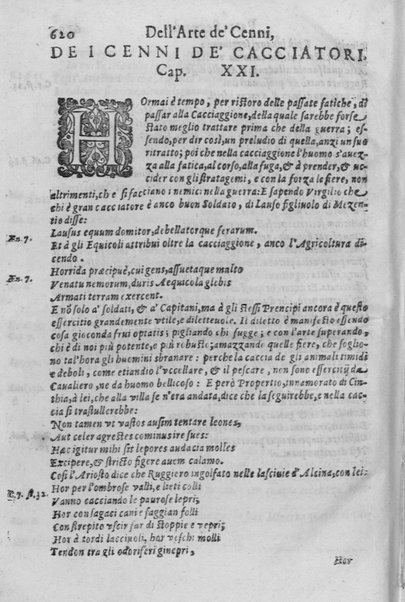 620 Dell'Arte de' Cenni,
DE I CENNI DE' CACCIATORI.
Cap. XXI.
HOrmai è tempo, per ristoro delle passate fatiche, di
passar alla Cacciaggione, della quale sarebbe forse
stato meglio trattare prima che della guerra; es-
sendo, per dir così, un preludio di quella, anzi un suo
ritratto; poi che nella cacciaggione l'huomo s'auez-
za alla fatica, al corso, alla fuga, & à prender, & uc-
cider con gli stratagemi, e con la forza le fiere, non
altrimenti, ch e si facciano i nemici nella guerra: E sapendo Virgilio che
chi è gran cacciatore è anco buon Soldato, di Lauso figliuolo di Mezen-
tio disse:
Æn. 7. Lausus equum domitor, debellatorque ferarum.
Et à gli Equicoli attribuì oltre la cacciaggione, anco l'Agricoltura di-
cendo.
Æn. 7. Horrida præcipuè, cui gens, assuetaque multo
Venatu nemorum, duris Aequicola glebis
Armati terram exercent.
E nõ solo a' soldati, & a' Capitani, ma à gli stessi Prencipi ancora è questo
essercitio grandemente vtile, e dilettevole. Il diletto è manifesto essendo
cosa gioconda frui optatis; pigliando chi fugge; e con l'arte superando,
chi è di noi più potente, e più robusto; amazzando quelle fiere, che soglio-
no tal'hora gli huomini sbranare: perche la caccia de gli animali timidi
e deboli, come etiandio l'vccellare, & il pescare, non sono essercitij da
Cavaliero, ne da huomo bellicoso: E però Propertio, innamorato di Cin-
thia, à lei, che alla villa se n'era andata, dice che la seguirebbe, e nella cac-
cia si trastullerebbe:
Non tamen vt vastos ausim tentare leones,
Aut celer agrestes cominus ire sues:
Hæc igitur mihi sit lepores audacia molles
Excipere, & stricto figere auem calamo.
Così l'Ariosto dice che Ruggiero ingolfato nelle lasciuie d'Alcina, con lei:
F. 7. st. 32. Hor per l'ombrose valli, e lieti colli
Vanno cacciando le paurose lepri;
Hor con sagaci cani e faggian folli
Con strepito vscir far di stoppie e vepri;
Hor à tordi lacciuoli, hor veschi molli
Tendon tra gli odoriferi ginepri,
Hor